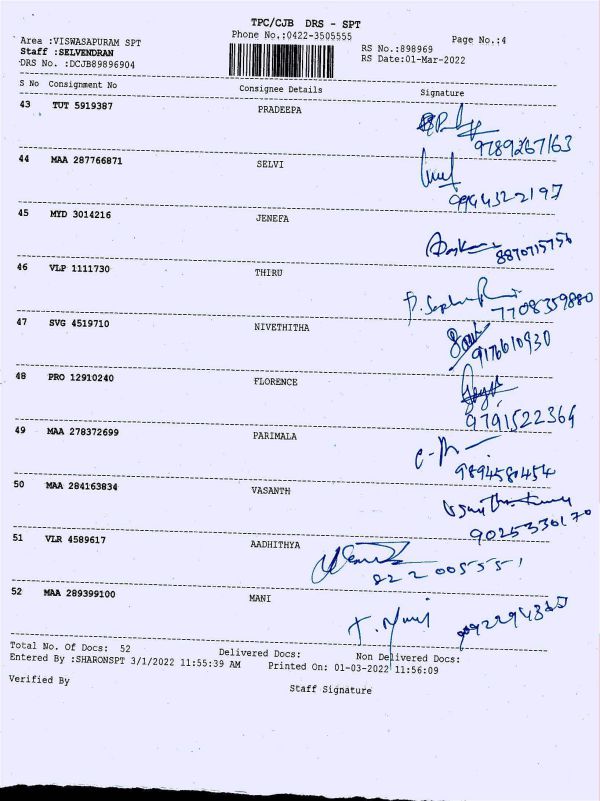 TPC/CJB DRS - SPT
Area :VISWASAPURAM SPT Phone No.:0422-3505555 Page No.:4
Staff :SELVENDRAN RS No.:898969
DRS No. :DCJB89896904 RS Date:01-Mar-2022
S No Consignment No Consignee Details Signature
43 TUT 5919387 PRADEEPA
9789267163
44 MAA 287766871 SELVI
9944322197
45 MYD 3014216 JENEFA
8870715756
46 VLP 1111730 THIRU
7708359880
47 SVG 4519710 NIVETHITHA
9176610930
48 PRO 12910240 FLORENCE
9791522364
49 MAA 278372699 PARIMALA
9894580454
50 MAA 284163834 VASANTH
9025330170
51 VLR 4589617 AADHITHYA
822005551
52 MAA 289399100 MANI
T. Mani
Total No. Of Docs: 52 Delivered Docs: Non Delivered Docs:
Entered By :SHARONSPT 3/1/2022 11:55:39 AM Printed On: 01-03-2022 11:56:09
Verified By Staff Signature